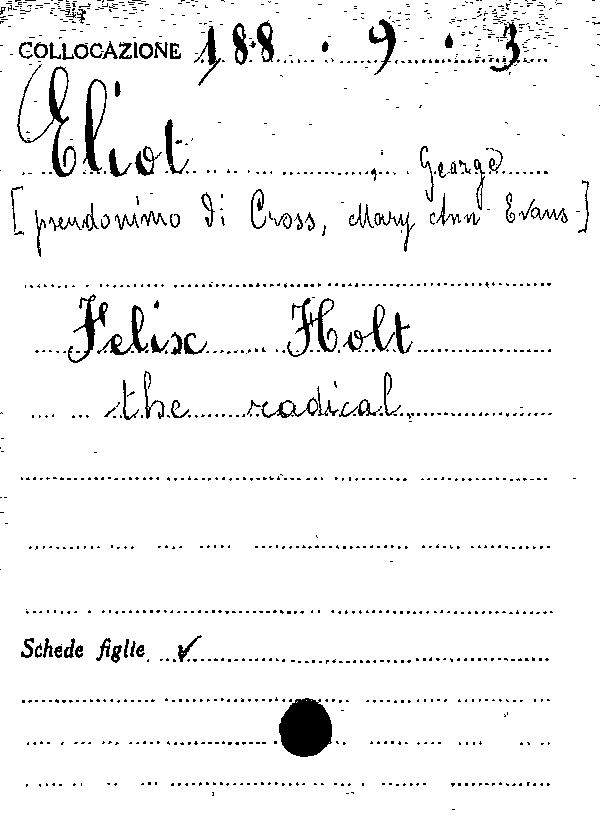 COLLOCAZIONE 188 . 9 . 3
Eliot, George
[pseudonimo di Cross, Mary Ann Evans-]
Felix Holt
the radical
Schede figlie ✓